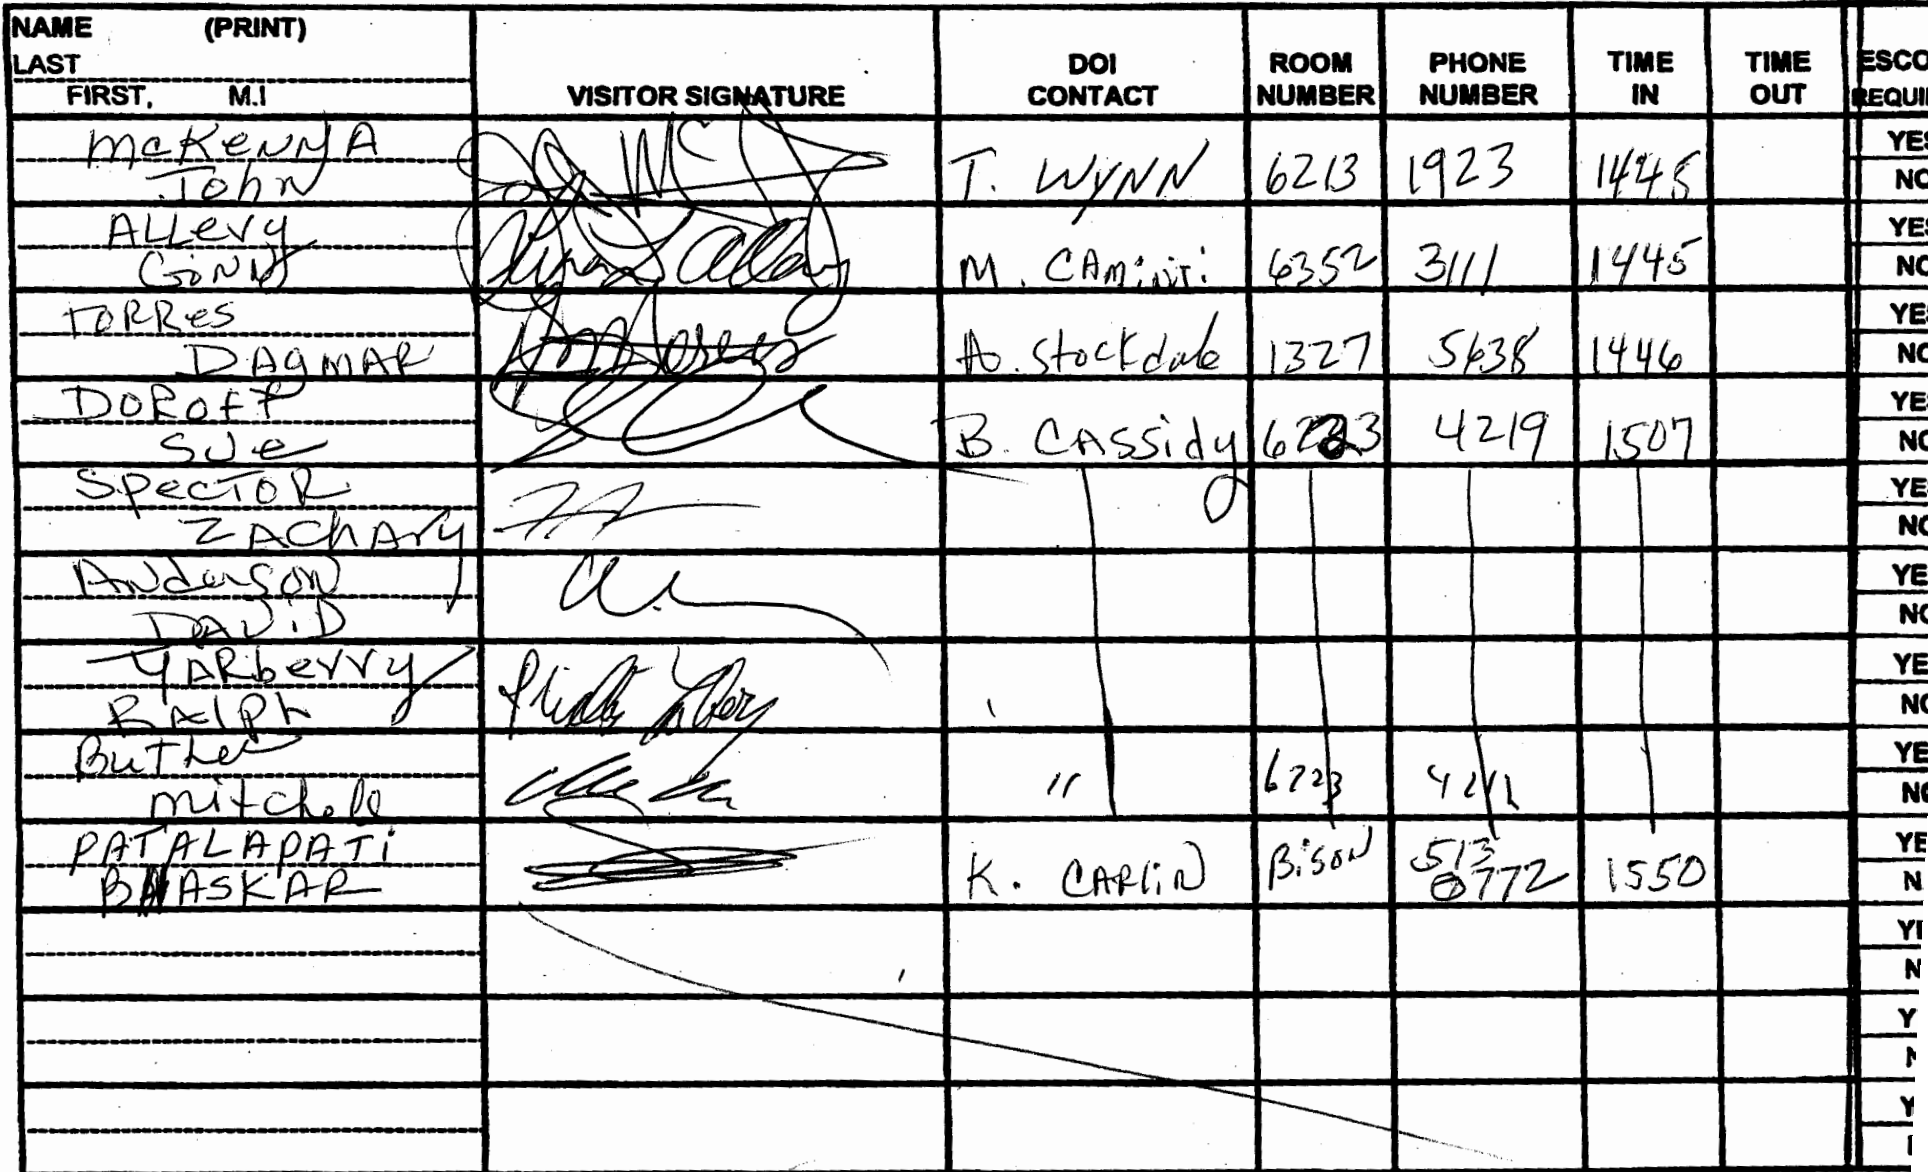 NAME (PRINT)
LAST
FIRST, M.I
VISITOR SIGNATURE
DOI CONTACT
ROOM NUMBER
PHONE NUMBER
TIME IN
TIME OUT
ESCO
REQUI
McKENNA
John T. WYNN 6213 1923 1445
YES
NO
ALLevy
GiNNy M. CAMiNiTi 6352 3111 1445
YES
NO
TORRes
DAgMAR A. Stockdale 1327 5638 1446
YES
NO
DOROFF
Sue B. CASSidy 6223 4219 1507
YES
NO
SPecTOR
ZAChARy
YES
NO
ANderSON
DAViD
YE
NO
YARberry
RAlph
YE
NO
Butler
mitchell " 6223 4211
YE
NO
PATALAPATi
BHASKAR K. CARLiN BiSON 513 0772 1550
YE
N
YI
N
Y
N
Y